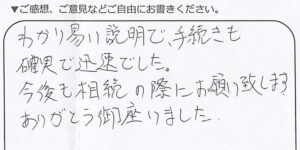 ▼ご感想、ご意見などご自由にお書きください。
わかり易い説明で、手続きも
確実で迅速でした。
今後も相続の際にお願い致します
ありがとう御座いました.